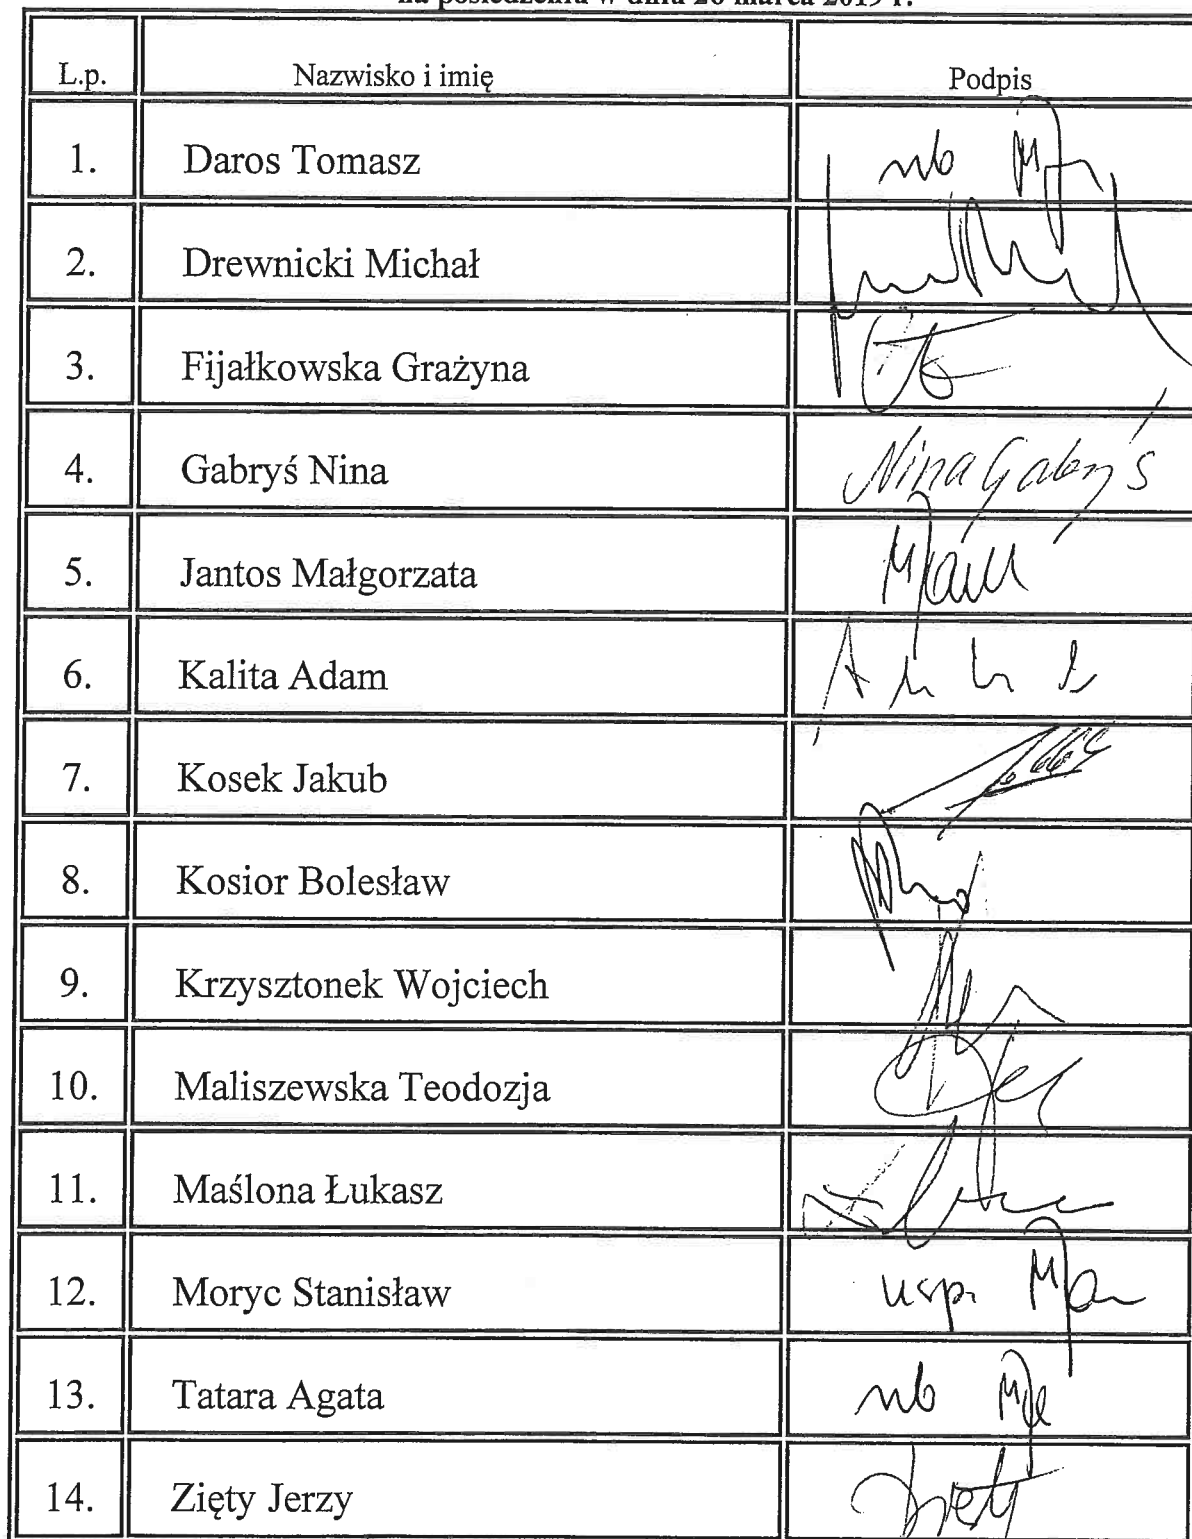 na posiedzeniu w dniu 26 marca 2019 r.
L.p. Nazwisko i imię Podpis
1. Daros Tomasz nb
2. Drewnicki Michał
3. Fijałkowska Grażyna
4. Gabryś Nina Nina Gabryś
5. Jantos Małgorzata
6. Kalita Adam
7. Kosek Jakub
8. Kosior Bolesław
9. Krzysztonek Wojciech
10. Maliszewska Teodozja
11. Maślona Łukasz
12. Moryc Stanisław usp.
13. Tatara Agata nb
14. Zięty Jerzy